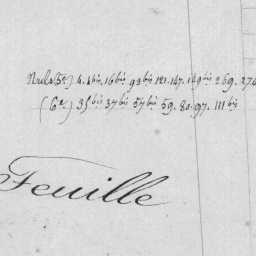 Nuls (5e) 4. 4bis. 16bis 93bis 121. 147. 149bis 259. 27
(6e) 35bis 37bis 57bis 59. 80. 97. 111bis
Feuille